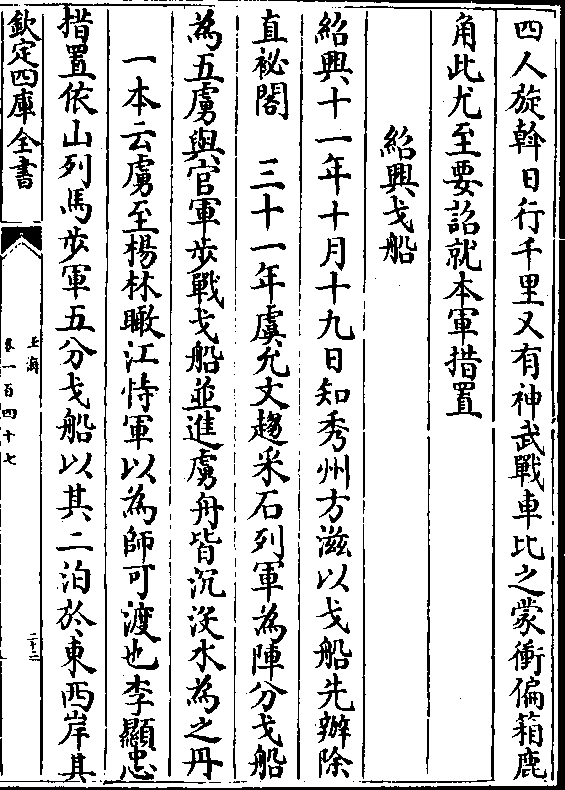 四人旋斡日行千里又有神武戰車比之蒙衝偏箱鹿
角此尤至要詔就本軍措置
紹興戈船
紹興十一年十月十九日知秀州方滋以戈船先辦除
直祕閣　三十一年虞允文趨采石列軍為陣分戈船
為五虜與官軍步戰戈船並進虜舟皆沉沒水為之丹
一本云虜至楊林瞰江恃軍以為師可渡也李顯忠
措置依山列馬步軍五分戈船以其二泊於東西岸其
欽定四庫全書
玉海
卷一百四十七
二十二